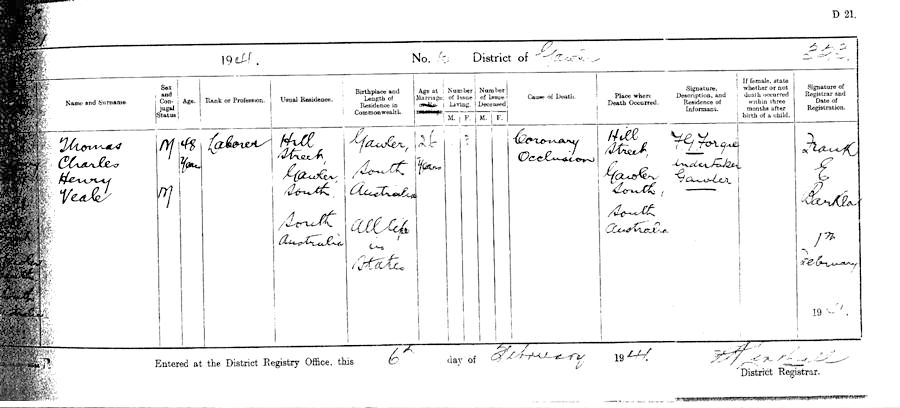 D 21.
1944. No. District of Gawler 353.
Name and Surname.
Sex and Conjugal Status
Age.
Rank or Profession.
Usual Residence.
Birthplace and Length of Residence in Commonwealth.
Age at Marriage
Number of Issue Living. M. F.
Number of Issue Deceased M. F.
Cause of Death.
Place where Death Occurred.
Signature, Description, and Residence of Informant.
If female, state whether or not death occurred within three months after birth of a child.
Signature of Registrar and Date of Registration.
Thomas
Charles
Henry
Veale
M
M
48
Years
Laborer
Hill
Street,
Gawler
South,
South
Australia
Gawler,
South
Australia
All life
in
State
26
Years
Coronary
Occlusion
Hill
Street,
Gawler
South,
South
Australia
undertaker
Gawler
Frank
E
February
19
Entered at the District Registry Office, this 6th day of February 1944.
District Registrar.